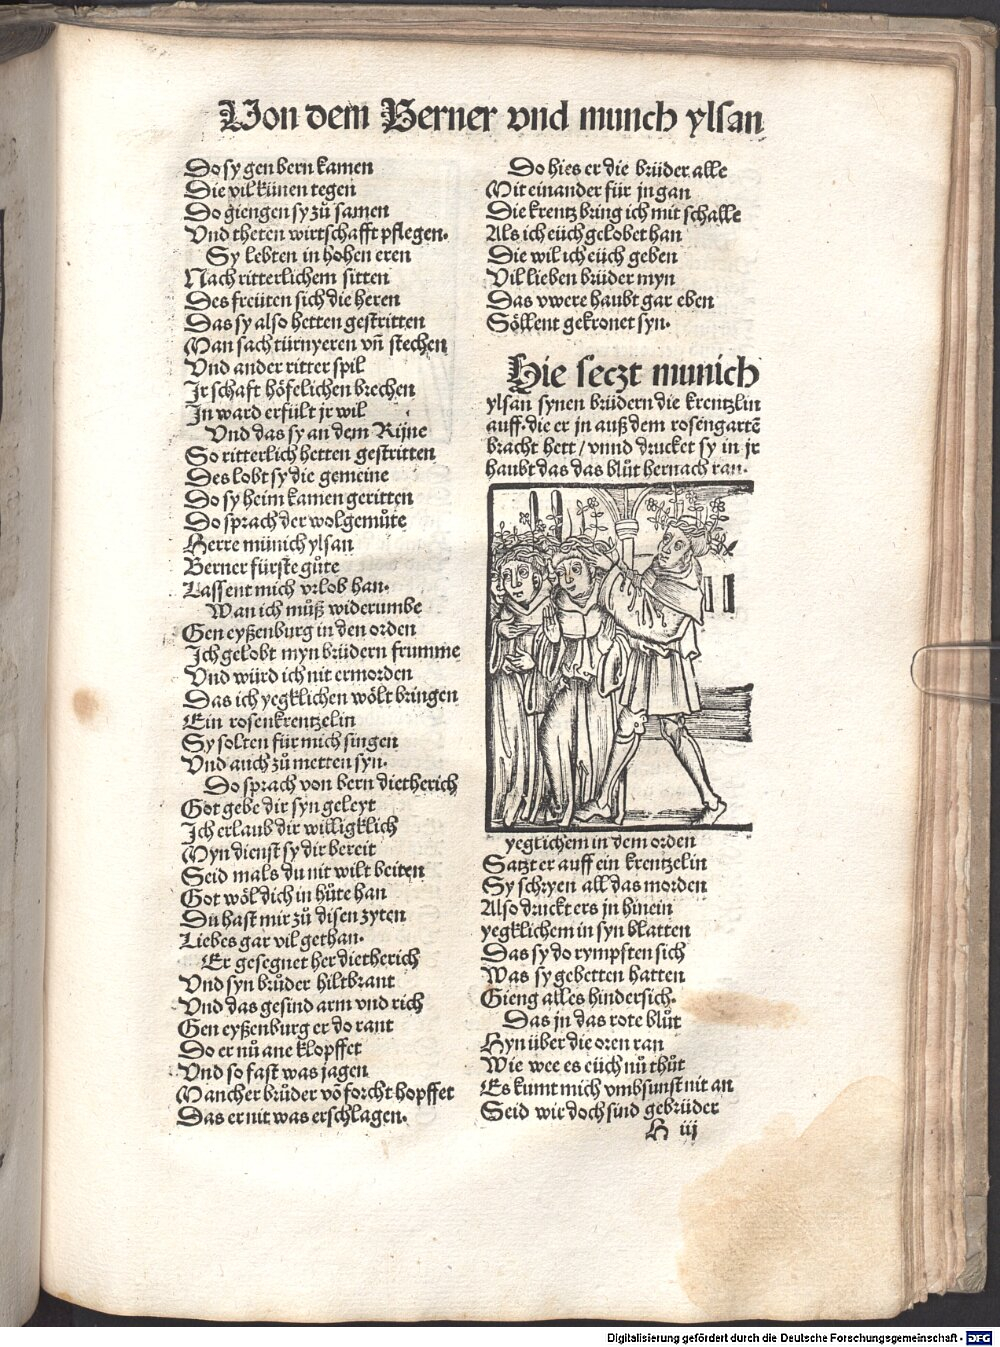 Von dem Berner vnd munch ylsan
Do sy gen bern kamen
Die vil künen tegen
Do giengen sy zů samen
Vnd theten wirtschafft pflegen.
Sy lebten in hohen eren
Nach ritterlichem sitten
Des freüten sich die heren
Das sy also hetten gestritten
Man sach türnyeren vñ stechen
Vnd ander ritter spil
Jr schaft höfelichen brechen
Jn ward erfült jr wil
Vnd das sy an dem Rijne
So ritterlich hetten gestritten
Des lobt sy die gemeine
Do sy heim kamen geritten
Do sprach der wolgemůte
Herre münich ylsan
Berner fürste gůte
Lassent mich vrlob han.
Wan ich můß widerumbe
Gen eyßenburg in den orden
Jch gelobt myn brüdern frumme
Vnd würd ich nit ermorden
Das ich yegklichen wölt bringen
Ein rosenkrentzelin
Sy solten für mich singen
Vnd auch zů metten syn.
Do sprach von bern dietherich
Got gebe dir syn geleyt
Jch erlaub dir willigklich
Myn dienst sy dir bereit
Seid mals du nit wilt beiten
Got wöl dich in hůte han
Du hast mir zů disen zyten
Liebes gar vil gethan.
Er gesegnet her dietherich
Vnd syn brůder hiltbrant
Vnd das gesind arm vnd rich
Gen eyßenburg er do rant
Do er nů ane klopffet
Vnd so fast was jagen
Mancher brůder võ forcht hopffet
Das er nit was erschlagen.
Do hies er die brüder alle
Mit einander für jn gan
Die krentz bring ich mit schalle
Als ich eüch gelobet han
Die wil ich eüch geben
Vil lieben brüder myn
Das vwere haubt gar eben
Söllent gekronet syn.
Hie seczt munich
ylsan synen brüdern die krentzlin
auff. die er jn auß dem rosengartẽ
bracht hett / vnnd drucket sy in jr
haubt das das blůt hernach ran.
yegklichem in dem orden
Satzt er auff ein krentzelin
Sy schryen all das morden
Also druckt ers jn hinein
yegklichem in syn blatten
Das sy do rympften sich
Was sy gebetten hatten
Gieng alles hindersich.
Das jn das rote blůt
Hyn über die oren ran
Wie wee es eüch nů thůt
Es kumt mich vmbsunst nit an
Seid wir doch sind gebrüder
H iij
Digitalisierung gefördert durch die Deutsche Forschungsgemeinschaft - DFG